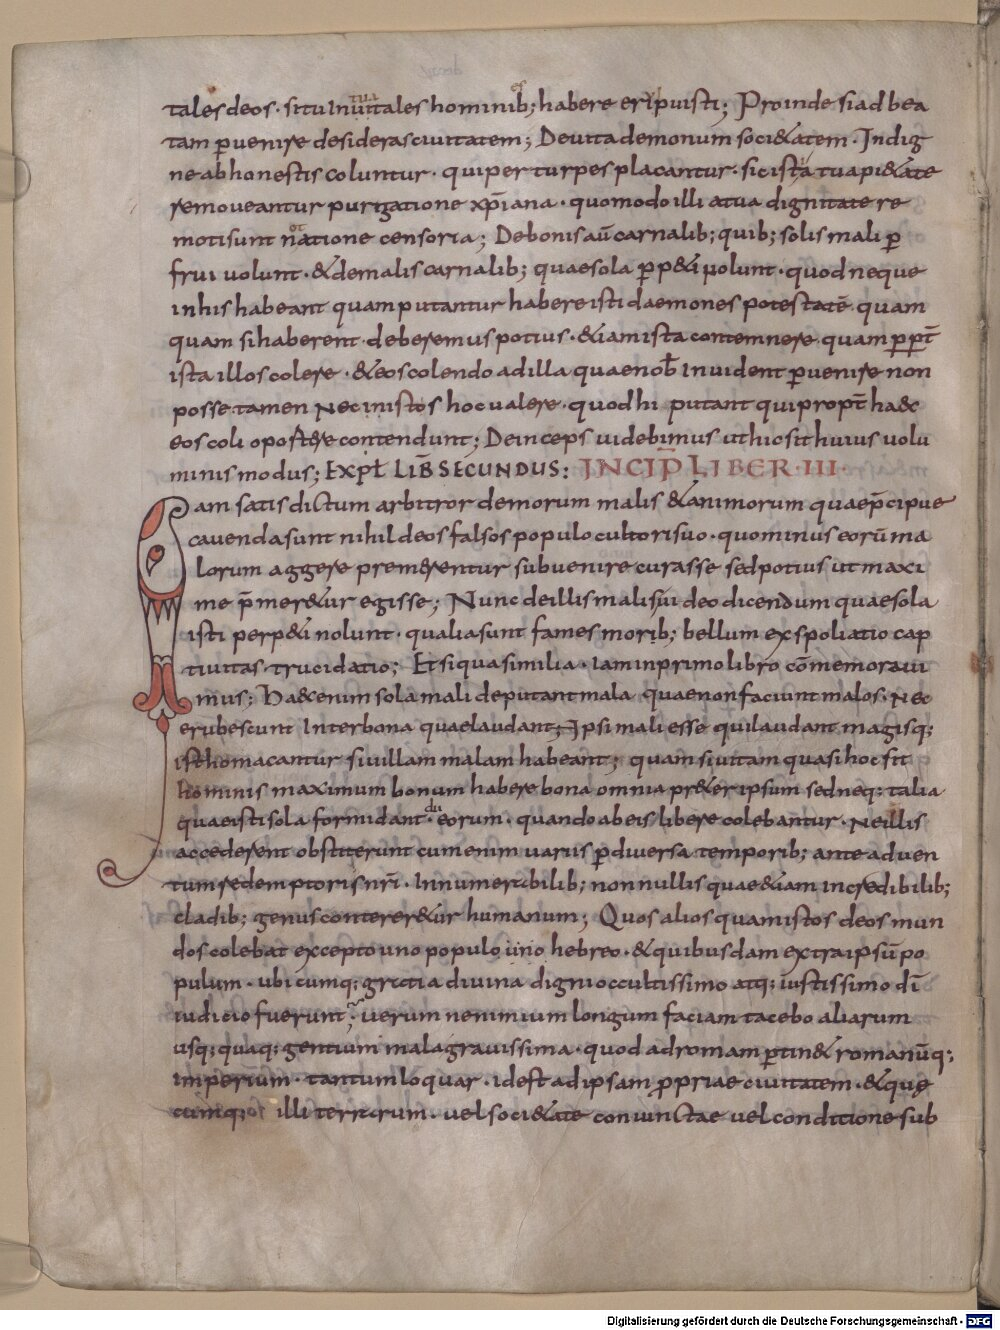 tales deos · situ Inuitales hominib; habere eripuisti; Proinde siad bea
tam puenire desideras ciuitatem; Deuita demonum soci&atem · Indig
ne ab honestis coluntur · qui per turpes placantur · sic ista tua pi&ate
remoueantur purgatione xp̄iana · quomodo illi atua dignitate re
moti sunt natione censoria; De bonis aū carnalib; quib; solis mali p
frui uolunt · & de malis carnalib; quae sola pp&i nolunt · quod neque
in his habeant quam putantur habere isti daemones potestatē quam
quam si haberent · deberemus potius · &iam ista contemnere quam ppt̄
ista illos colere · & eos colendo ad illa quae nob̄ Inuident puenire non
posse tamen Nec in istos hoc ualere · quod hi putant qui propt̄ haec
eos coli oport&re contendunt; Deinceps uidebimus ut hic sit huius uolu
minis modus; EXPL̄ LIB̄ SECUNDUS: INCIP̄ LIBER · III ·
Iam satis dictum arbitror de morum malis & animorum quae p̄cipue
cauenda sunt nihil deos falsos populo cultori suo · quominus eorū ma
lorum aggere premerentur subuenire curasse sed potius ut maxi
me p̄mer&ur egisse; Nunc de illis malis ui deo dicendum quae sola
isti perp&i nolunt · qualia sunt fames morib; bellum exspoliatio cap
tiuitas · trucidatio; Et si qua similia · Iam in primo libro cōmemoraui
mus; Haec enim sola mali deputant mala quae non faciunt malos · Nec
erubescunt Inter bona quae laudant; Ipsi mali esse qui laudant magisq;
isthomacantur si uillam malam habeant; quam si uitam quasi hoc sit
hominis maximum bonum habere bona omnia pr&er ipsum sed neq; talia
quae isti sola formidant · dii eorum · quando ab eis libere colebantur · Ne illis
accederent obstiterunt cum enim uariis p diuersa temporib; ante aduen
tum redemptoris nr̄i · Innumerabilib; nonnullis quae &iam incredibilib;
cladib; genus conterer&ur humanum; Quos alios quam istos deos mun
dos colebat excepto uno populo uno hebreo · & quibusdam extra ipsū po
pulum · ubicumq; gratia diuina digni occultissimo atq; iustissimo dī
iudicio fuerunt; uerum ne nimium longum faciam tacebo aliarum
usq; quaq; gentium mala grauissima · quod ad romam ptin& romanūq;
imperium · tantum loquar · id est ad ipsam ppriae ciuitatem · & quę
cumq; illi terrarum · uel soci&ate coniunctae uel conditione sub
Digitalisierung gefördert durch die Deutsche Forschungsgemeinschaft - DFG